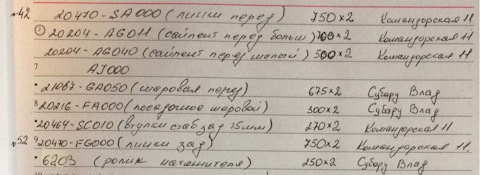 42 20470-SA000 (линки перед) 750×2 Командорская 11
20204-AG011 (сайлент перед больш) 700×2 Командорская 11
20204-AG040 (сайлент перед малый) 500×2 Командорская 11
7 AJ000
21067-GA050 (шаровая перед) 675×2 Субару Влад
8 20216-FA000 (посадочное шаровой) 300×2 Субару Влад
20464-SC010 (втулки стаб зад 15мм) 270×2 Командорская 11
52 9 20470-FG000 (линки зад) 750×2 Командорская 11.
6203 (ролик натяжителя) 250×2 Субару Влад